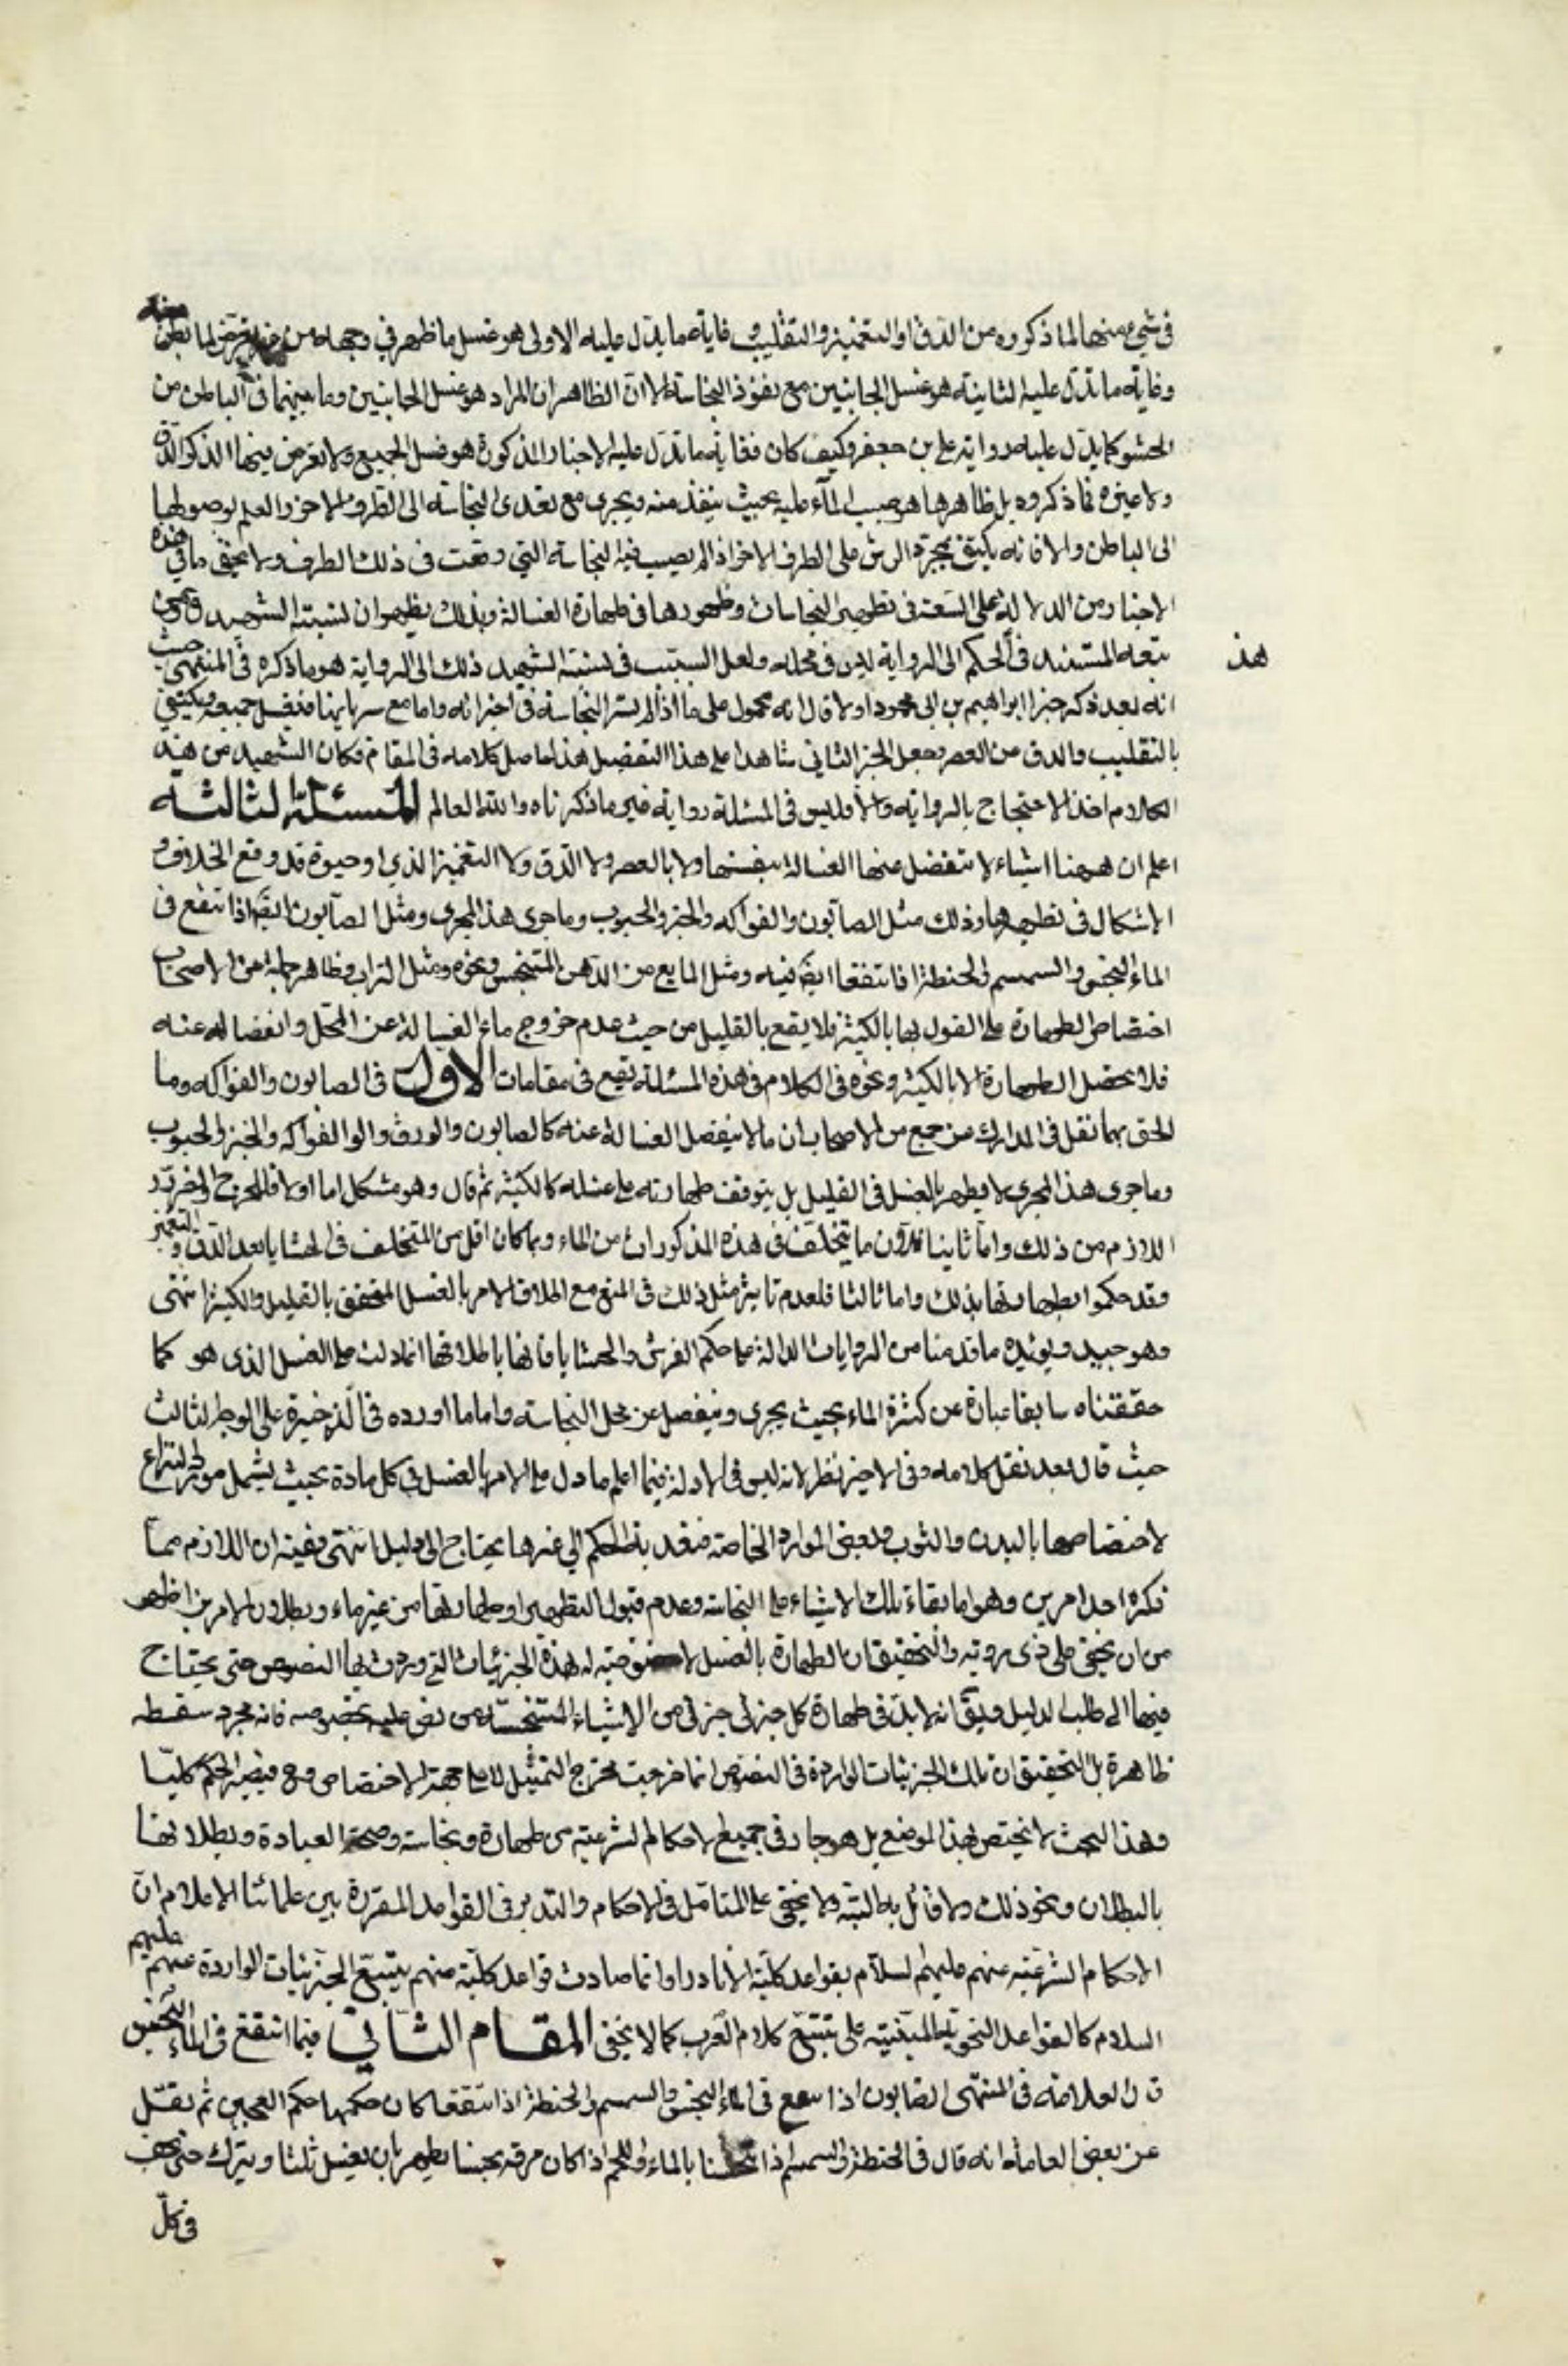 في شيء منها لما ذكروه من الدق او التغميز والتقليب وغاية ما يدل عليه الاولى هو غسل ما ظهر في وجهه من غير تعرض لما بطن منه
وغاية ما تدل عليه الثانية هو غسل الجانبين مع نفوذ النجاسة الا ان الظاهر ان المراد هو غسل الجانبين وما بينهما في الباطن من
الحشو كما يدل عليه رواية علي بن جعفر وكيف كان فغاية ما تدل عليه الاخبار المذكورة هو غسل الجميع ولا تعرض فيها لذكر الدق
ولا غيره مما ذكروه بل ظاهرها هو صب الماء عليه بحيث ينفذ منه ويجري مع تعدى النجاسة الى الطرف الاخر والعلم بوصولها
الى الباطن والا فانه يكتفى بمجرد الرش على الطرف الاخر اذا لم يصب فيه النجاسة التي وقعت في ذلك الطرف ولا يخفى ما في هذه
الاخبار من الدلالة على السعة في تطهير النجاسات وظهورها في طهارة الغسالة وبذلك يظهر ان نسبة الشهيد ومن
تبعه المستند في الحكم الى الرواية ليس في محله ولعل السبب في نسبة الشهيد ذلك الى الرواية هو ما ذكره في المنتهى حيث
هذ
انه بعد ذكر خبر ابراهيم بن ابي محمود اولا قال انه محمول على ما اذا لم تسر النجاسة في اجزائه واما مع سريانها فيغسل جميعه ويكتفي
بالتقليب والدق عن العصر وجعل الخبر الثاني شاهدا على هذا التفصيل هذا حاصل كلامه في المقام فكان الشهيد من هذا
الكلام اخذ الاحتجاج بالرواية والا فليس في المسئلة رواية غير ما ذكرناه والله العالم المسئلة الثالثة
اعلم ان ههنا اشياء لا تنفصل عنها الغسالة بنفسها ولا بالعصر ولا الدق ولا التغميز الذي اوجبوه قد وقع الخلاف و
الاشكال في تطهيرها وذلك مثل الصابون والفواكه والخبز والحبوب وما جرى هذا المجرى ومثل الصابون ايضا اذا انتقع في
الماء النجس والسمسم والحنطة اذا انتقعا ايضا فيه ومثل المايع من الدهن المتنجس ونحوه ومثل التراب وظاهر جملة من الاصحاب
اختصاص الطهارة على القول بها بالكثير فلا يقع بالقليل من حيث عدم خروج ماء الغسالة عن المحل وانفصاله عنه
فلا يحصل الطهارة الا بالكثير ونحوه في الكلام في هذه المسئلة يقع في مقامات الاول في الصابون والفواكه وما
الحق بهما نقل في المدارك عن جمع من الاصحاب ان ما لا ينفصل الغسالة عنه كالصابون والورق والفواكه والخبز والحبوب
وما جرى هذا المجرى لا يطهر بالغسل في القليل بل يتوقف طهارته على غسله كالكثير ثم قال وهو مشكل اما اولا فللحرج والضرر
اللازم من ذلك واما ثانيا فلان ما يتخلف في هذه المذكورات من الماء ربما كان اقل من المتخلف في الحشايا بعد الدق والتغميز
وقد حكموا بطهارتها بذلك واما ثالثا فلعدم تاثير مثل ذلك في المنع مع اطلاق الامر بالغسل المتحقق بالقليل والكثير انتهى
وهو جيد ويؤيده ما قدمنا من الروايات الدالة على حكم الفرش والحشايا فانها باطلاقها انما دلت على الغسل الذي هو كما
حققناه سابقا عبارة عن كثرة الماء بحيث يجري وينفصل عن محل النجاسة واما ما اورده في الذخيرة على الوجه الثالث
حيث قال بعد نقل كلامه وفي الاخير نظر لانه ليس في الادلة فيما اعلم ما دل على الامر بالغسل في كل مادة بحيث يشمل مورد النزاع
لاختصاصها بالبدن والثوب وبعض الموارد الخاصة فتعدية الحكم الى غيرها يحتاج الى دليل انتهى ففيه ان اللازم مما
ذكره احد امرين وهو اما بقاء تلك الاشياء على النجاسة وعدم قبول التطهير او طهارتها من غير ماء وبطلان الامرين اظهر
من ان يخفى على ذي روية والتحقيق ان الطهارة بالغسل لا خصوصية له بهذه الجزئيات التي وردت بها النصوص حتى يحتاج
فيها الى طلب الدليل ويق انه لا بد في طهارة كل جزئي جزئي من الاشياء المتنجسة من نص عليه بخصوصه فانه مجرد سفسطة
ظاهرة بل التحقيق ان تلك الجزئيات الواردة في النصوص انما خرجت مخرج التمثيل لا على جهة الاختصاص فيصير الحكم كليا
وهذا البحث لا يختص بهذا الموضع بل هو جار في جميع الاحكام الشرعية من طهارة ونجاسة وصحة العبادة وبطلانها
بالبطلان ونحو ذلك ولا قائل به البتة ولا يخفى على المتامل في الاحكام والتدبر في القواعد المقررة بين علمائنا الاعلام ان
الاحكام الشرعية عنهم عليهم السلام بقواعد كلية الا نادرا وانما صارت قواعد كلية منهم بتتبع الجزئيات الواردة عنهم عليهم
السلام كالقواعد النحوية المبنية على تتبع كلام العرب كما لا يخفى المقام الثاني فيما انتقع في الماء النجس
قال العلامة في المنتهى الصابون اذا انتقع في الماء النجس والسمسم والحنطة اذا انتقعا كان حكمها حكم العجين ثم نقل
عن بعض العامة انه قال في الحنطة والسمسم اذا تنجسا بالماء واللحم اذا كان مرقه نجسا يطهر بان يغسل ثلثا ويترك حتى يجف
في كل